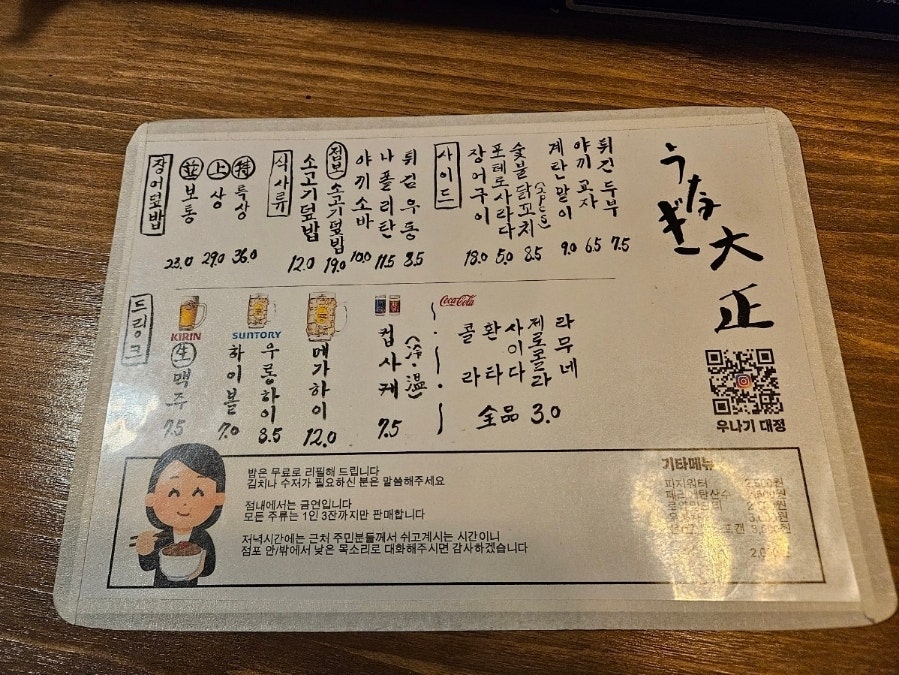 장어덮밥
並 보통 23.0
上 상 29.0
特 특상 36.0
식사류
소고기덮밥 12.0
점보 소고기덮밥 19.0
야끼소바 10.0
나폴리탄 11.5
튀김우동 8.5
사이드
장어구이 18.0
포테토사라다 5.0
숯불닭꼬치 8.5
계란말이 9.0
야끼교자 6.5
튀긴두부 7.5
うなぎ
大正
우나기 대정
드링크
KIRIN
生맥주 7.5
SUNTORY
하이볼 7.0
우롱하이 8.5
메가하이 12.0
컵사케 (冷·温) 7.5
Coca-Cola
콜라
환타
사이다
제로콜라
라무네
全品 3.0
밥은 무료로 리필해 드립니다
김치나 수저가 필요하신 분은 말씀해주세요
점내에서는 금연입니다
모든 주류는 1인 3잔까지만 판매합니다
저녁시간에는 근처 주민분들께서 쉬고계시는 시간이니
점포 안/밖에서 낮은 목소리로 대화해주시면 감사하겠습니다
기타메뉴
파지워터 2,500원